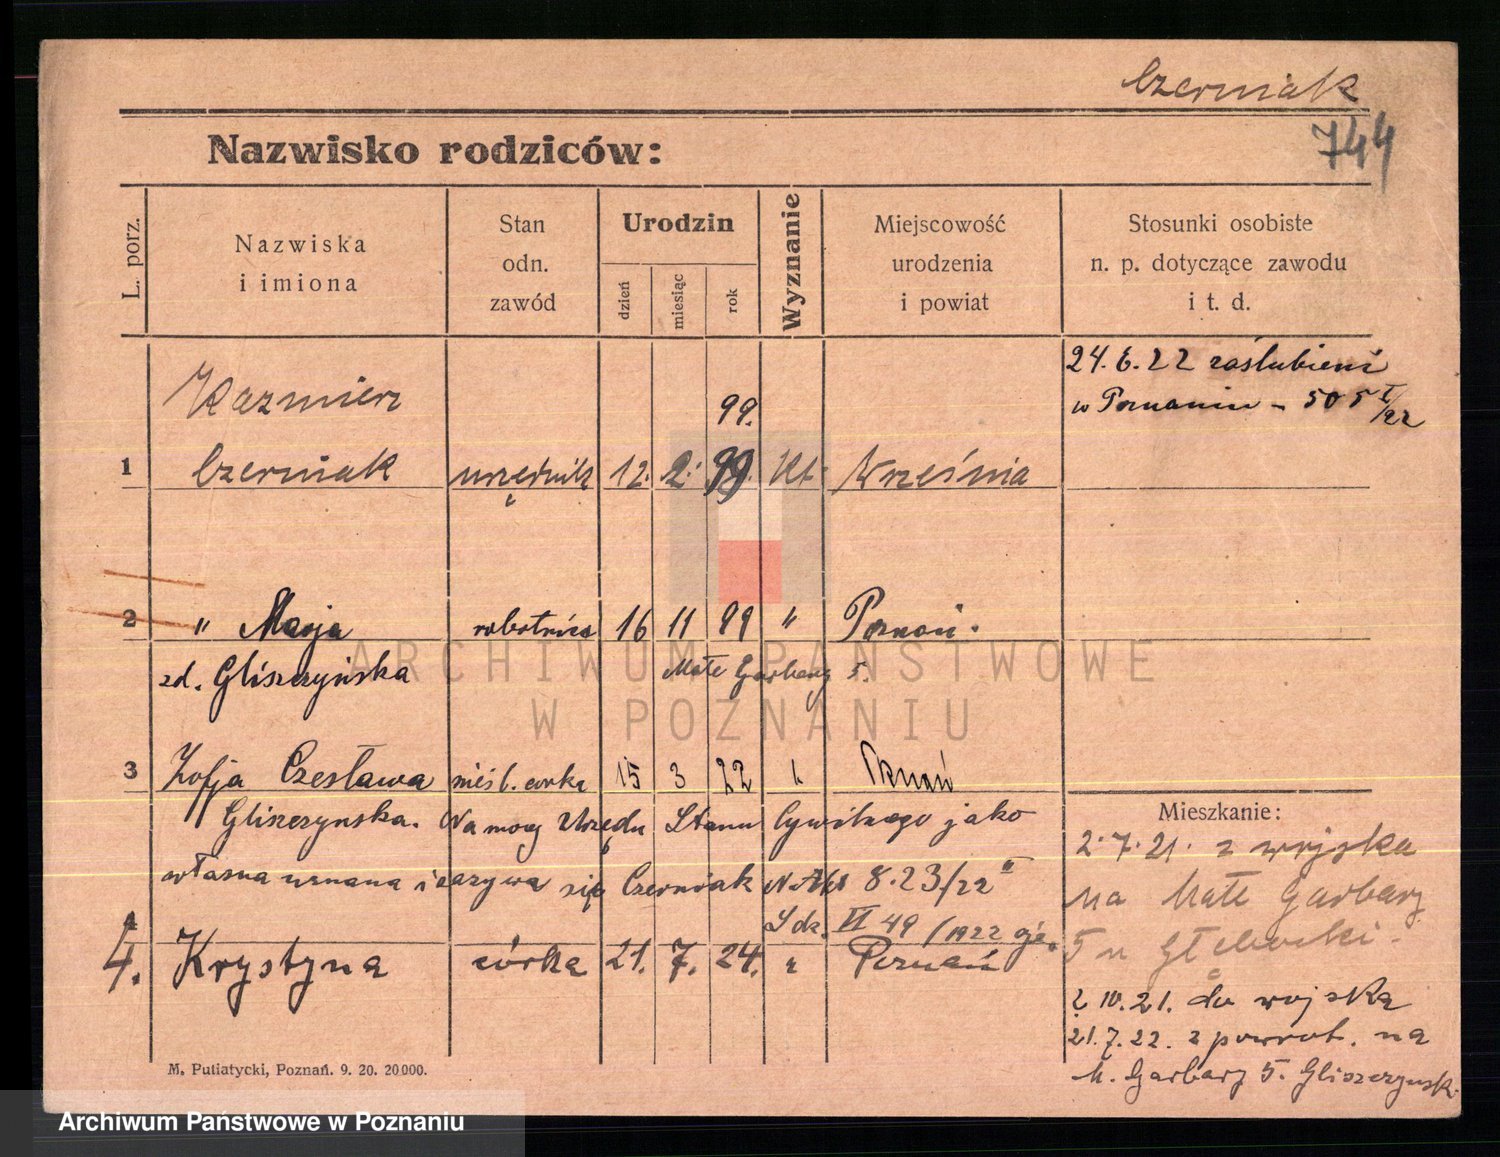 Czerniak
744
Nazwisko rodziców:
L. porz.
Nazwiska
i imiona
Stan
odn.
zawód
Urodzin
dzień
miesiąc
rok
Wyznanie
Miejscowość
urodzenia
i powiat
Stosunki osobiste
n. p. dotyczące zawodu
i t. d.
24. 6. 22 zaślubieni
w Poznaniu - 505 I/22
Kazmierz 99.
1 Czerniak urzędnik 12. 2. 99. Kt. Września
2 " Marja robotnica 16 11 99 " Poznań.
zd. Gliszczyńska Małe Garbary 5.
3 Zofja Czesława nieśl. córka 15 3 22 " Poznań
Gliszczynska. Na mocy Urzędu Stanu Cywilnego jako
własna uznana i nazywa się Czerniak N. Akt 8.23/22
VI 49/1922
4. Krystyna córka 21. 7. 24. " Poznań
Mieszkanie:
2.7.21. z wojska
na Małe Garbary
5 u
10.21. do wojska
21.7.22. z powrot. na
M. Garbary 5. Gliszczynsk.
M. Putiatycki, Poznań. 9. 20. 20000.
ARCHIWUM PAŃSTWOWE
W POZNANIU
Archiwum Państwowe w Poznaniu